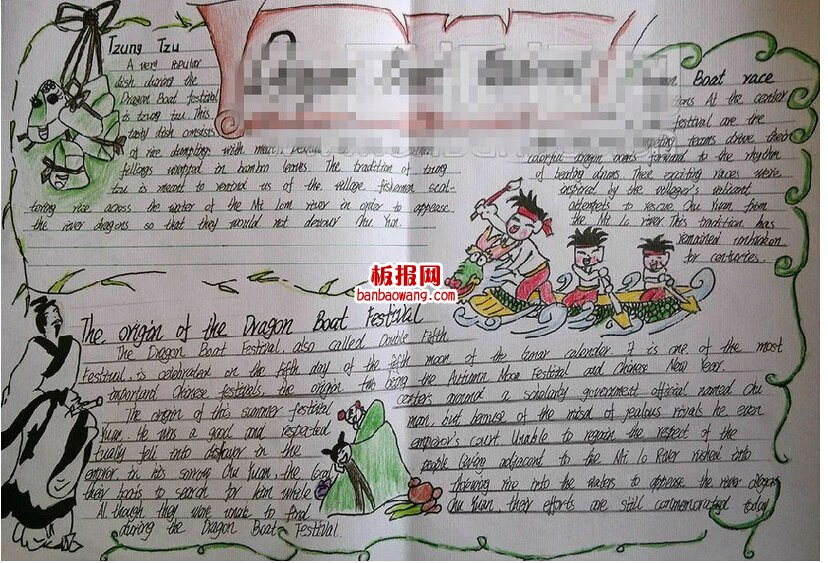 Tzung Tzu
A very popular
dish during the
Dragon Boat festival
is tzung tzu. This
tasty dish consists
of rice dumpling with meat,
fellings wrapped in bamboo leaves. The tradition of tzung
tzu is meant to remind us of the village fishermen scat-
tering rice across the water of the Mi Lom river in order to appease
the river dragons so that they would not devour Chu Yun.
Boat race
At the center
festival are the
teams drive their
colorful dragon boats forward to the rhythm
of beating drums These exciting races were
inspired by the villager's valiant
attempts to rescue Chu Yuan from
the Mi Lo river This tradition has
remained unbroken
for centuries.
板报网
banbaowang.com
The origin of the Dragon Boat Festival
The Dragon Boat Festival, also called Double Fifth
Festival, is celebrated on the fifth day of the fifth moon of the lunar calender. It is one of the most
important Chinese festivals, the origin two being the Autumn Moon Festival and Chinese New Year.
The origin of this summer festival centers around a scholarly government official named Chu
Yuan. He was a good and respected man, but because of the misrul of jealous rivals he even
tually fell into disfavor in the emperor's court. Unable to regain the respect of the
emperor, in his sorrow Chu Yuan, the local people living adjacent to the Mi Lo River rushed into
their boats to search for him while throwing rice into the waters to appease the river dragons
Al though they were unable to find Chu Yuan their efforts are still commemorated today
during the Dragon Boat Festival.